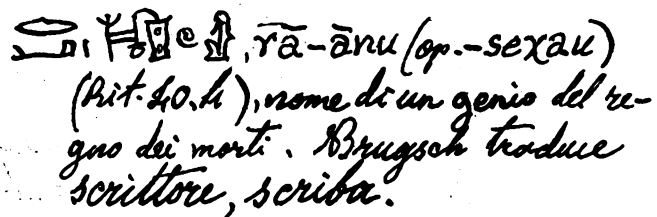 , rā-ānu (op.-sexau)
(Rit. 40. 4), nome di un genio del re-
gno dei morti. Brugsch traduce
scrittore, scriba.